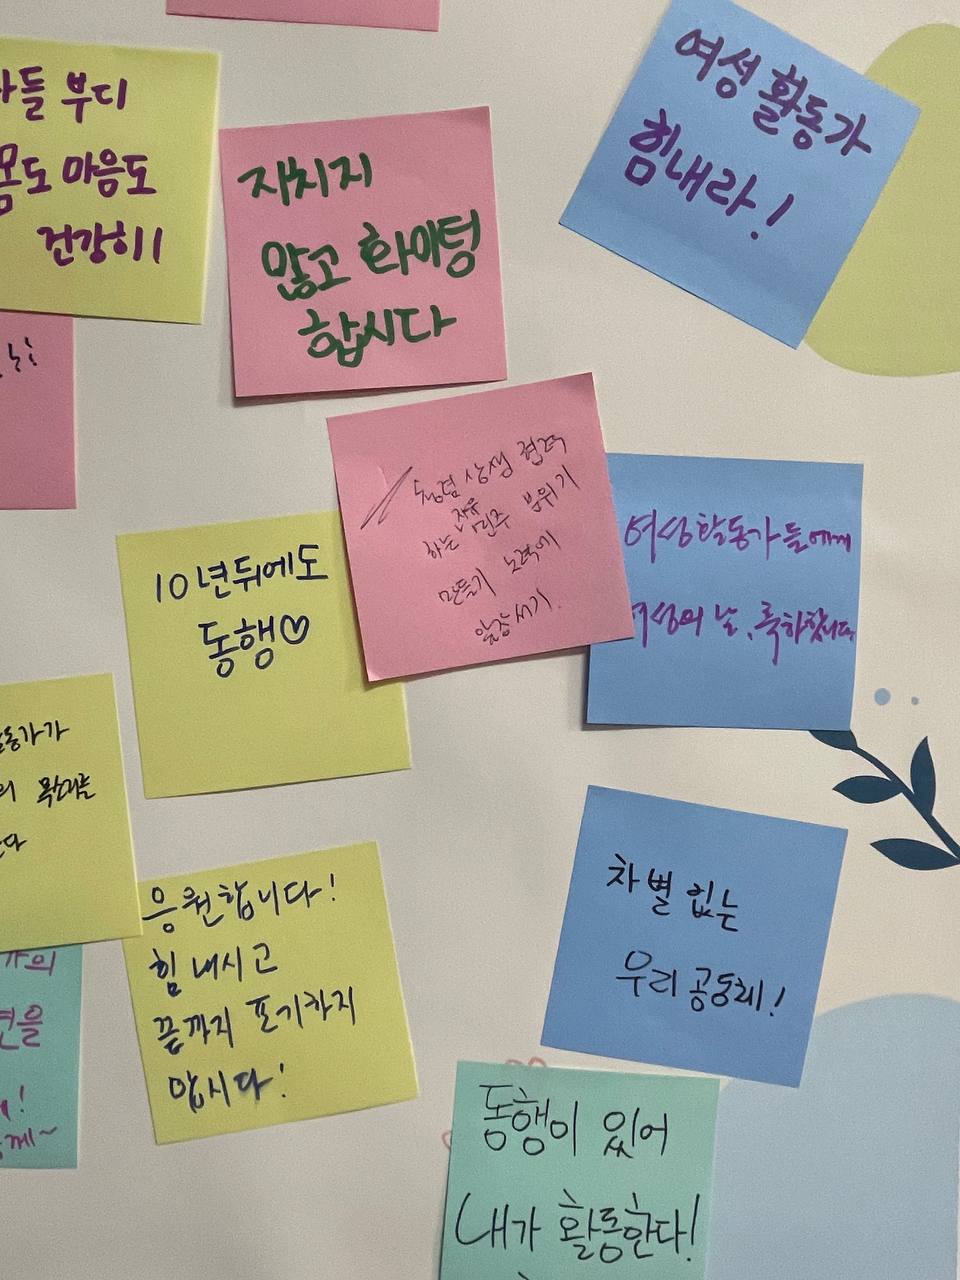 부디
몸도 마음도
건강히!!
지치지
않고 화이팅
합시다
여성 활동가
힘내라!
청렴 상생 협력
하는 자유 민주 분위기
만들기 노력에
앞장서기.
여성활동가들에게
여성의 날, 축하합니다.
10년뒤에도
동행♡
활동가가
의 목소리를
응원합니다!
힘내시고
끝까지 포기하지
맙시다!
차별 없는
우리 공동체!
동행이 있어
내가 활동한다!